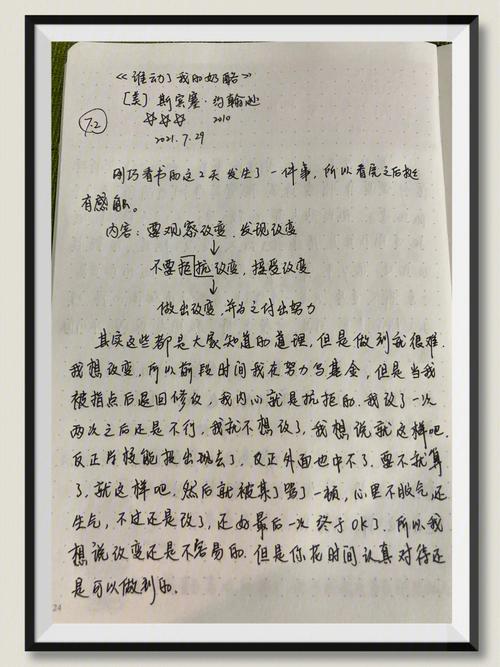 《谁动了我的奶酪》
[美] 斯宾塞·约翰逊
☆☆☆ 2010
7.2
2021.7.29
刚巧看书的这2天发生了一件事，所以看完之后挺
有感触。
内容：要观察改变，发现改变
↓
不要抗拒改变，接受改变
↓
做出改变，并为之付出努力
其实这些都是大家知道的道理，但是做到就很难。
我想改变，所以前段时间我在努力写基金，但是当我
被指点后退回修改，我内心就是抗拒的。我改了一次
两次之后还是不行，我就不想改了，我想说就这样吧，
反正能提出去了，反正外面也中不了。要不就算
了，就这样吧。然后就被某了骂了一顿，心里不服气，还
生气，不过还是改了，还好最后一次终于OK了。所以我
想说改变还是不容易的。但是你花时间认真对待还
是可以做到的。
24